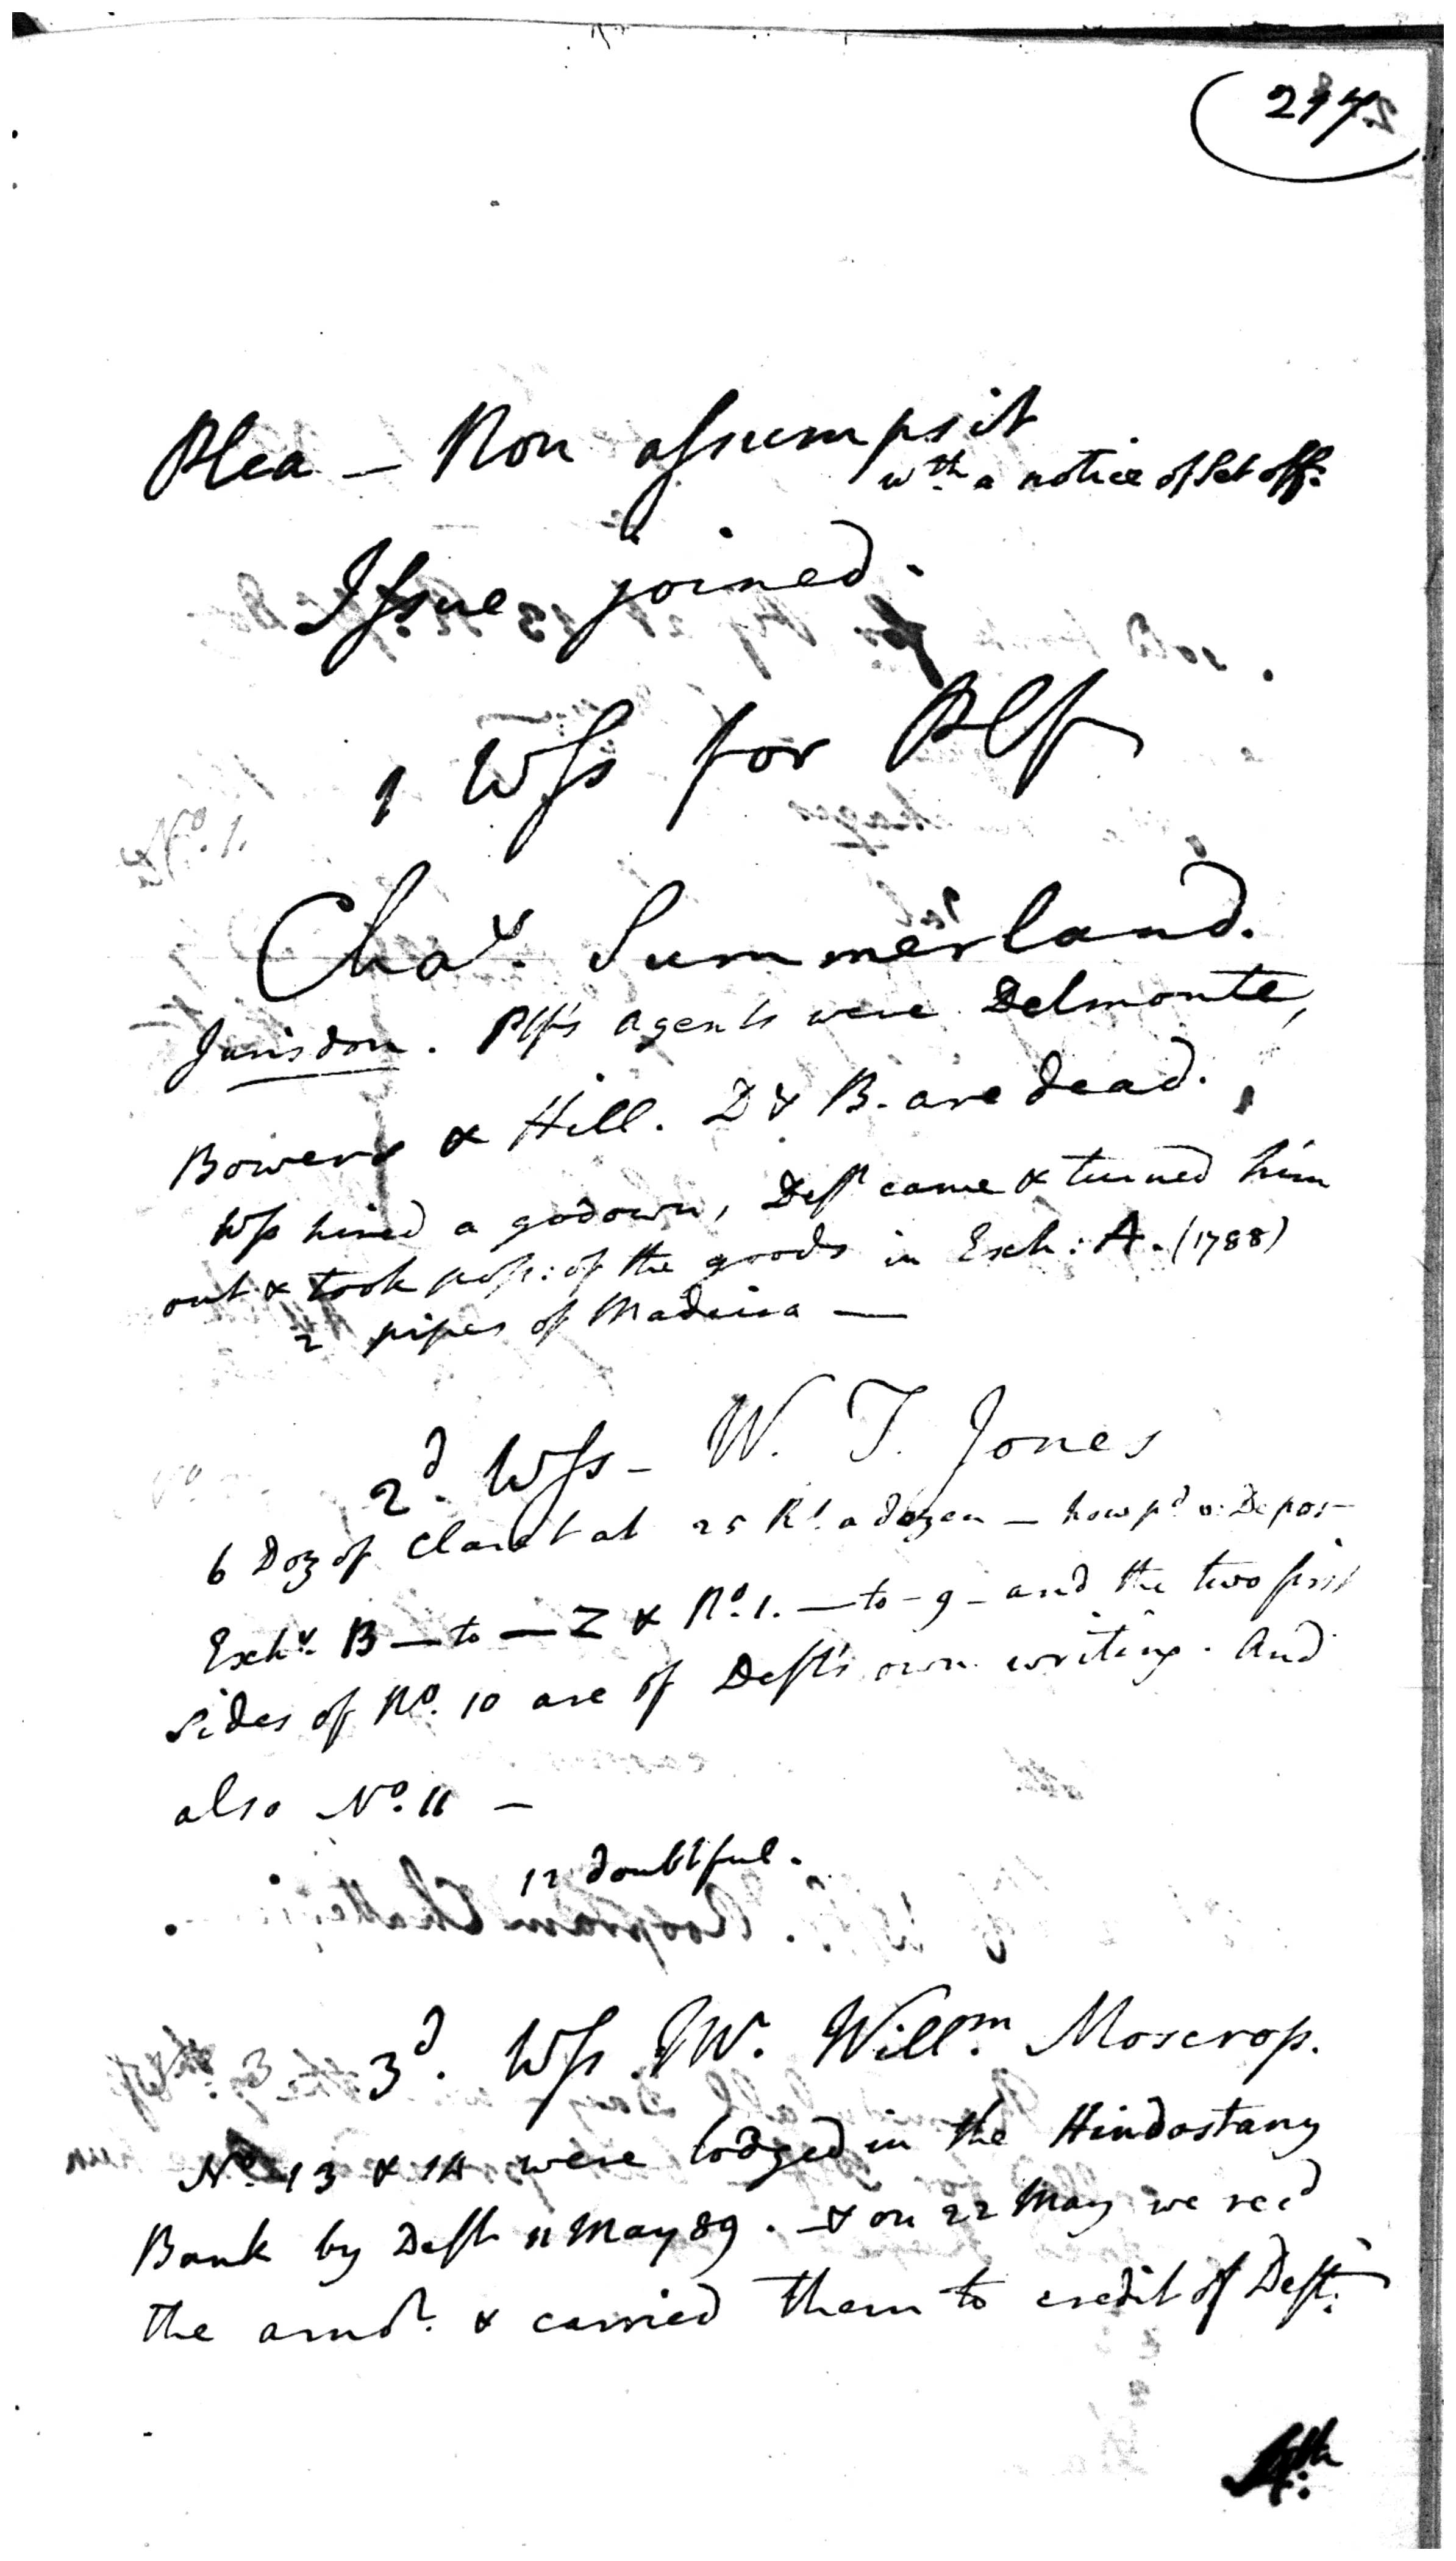 217
Plea — Non assumpsit
wth. a notice of Set off.
Issue joined.
1 Wss for Plf
Chas. Summerland.
Jurisdon. Plf's agents were Delmonte,
Bowers & Hill. D & B. are dead.
Wss hired a godown, Deft came & turned him
out & took poss: of the goods in Exh: A. (1788)
2 pipes of Madeira —
2d. Wss — W. T. Jones
6 Doz of Claret at 25 Rs. a dozen — how pd v. Depos—
Exhs. B — to — Z & No. 1. — to — 9 — and the two first
sides of No. 10 are of Deft's own writing. And
also No. 11 —
12 doubtful.
3d. Wss. Mr. Willm. Moscrop.
No. 13 & 14 were lodged in the Hindostany
Bank by Deft 11 May 89. — & on 22 May we recd
the amot. & carried them to credit of Deft.
4th.